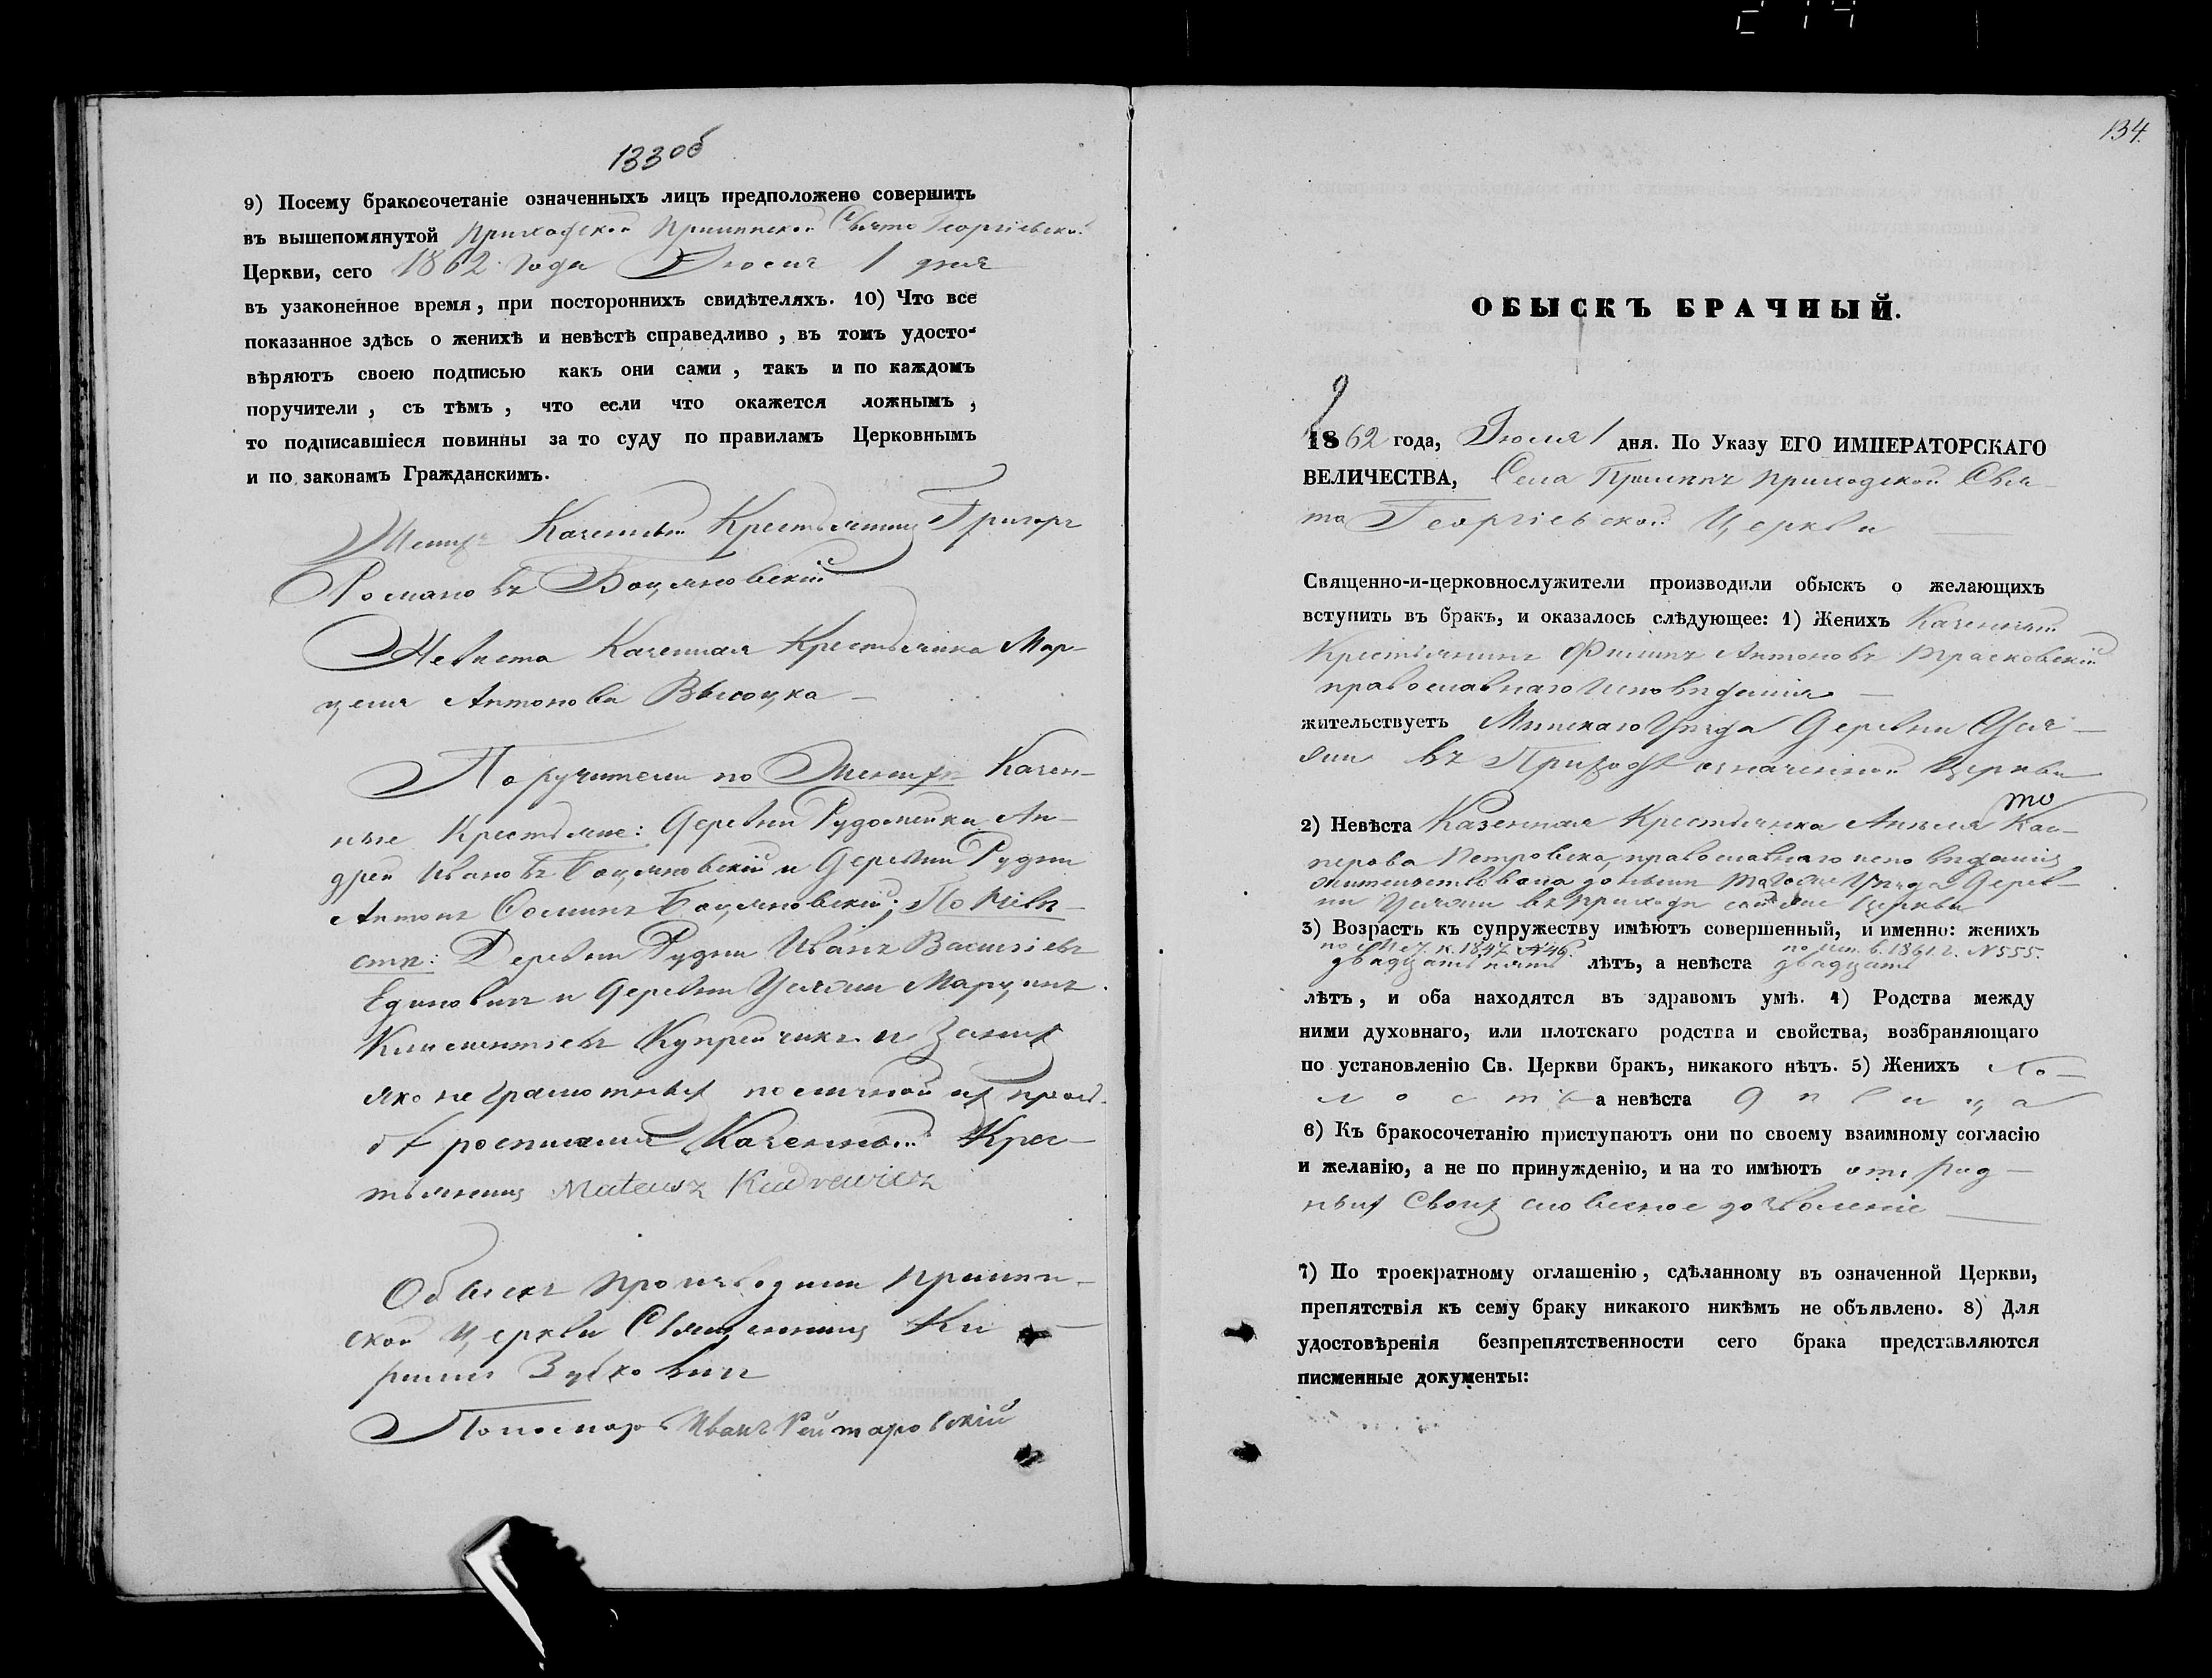 133 об
9) Посему бракосочетаніе означенныхъ лицъ предположено совершить
въ вышепомянутой приходской Прилипской Свято Георгіевской
Церкви, сего 1862 года Іюля 1 дня
въ узаконенное время, при постороннихъ свидѣтеляхъ. 10) Что все
показанное здѣсь о женихѣ и невѣстѣ справедливо, въ томъ удосто-
вѣряютъ своею подписью какъ они сами, такъ и по каждомъ
поручители, съ тѣмъ, что если что окажется ложнымъ,
то подписавшіеся повинны за то суду по правиламъ Церковнымъ
и по законамъ Гражданскимъ.
Женихъ Казенный Крестьянинъ Григоръ
Романовъ Боцяновскій
Невѣста Казенная Крестьянка Мар-
целя Антонова Высоцка
Поручители по Женихѣ Казен-
ные Крестьяне: Деревни Рудомейки Ан-
дрей Ивановъ Боцяновскій и Деревни Рудни
Антонъ Боцяновскій; По Невѣ-
стѣ: Деревни Рудни Иванъ Васильевъ
Единовичъ и Деревни Усяжи Марцинъ
Климентіевъ Купрейчикъ и за них
яко неграмотных по личной их прось-
бѣ росписался Казенный Крес-
тьянинъ Mateusz Kudrewicz
Обыскъ производили Прилеп-
ской Церкви Священникъ Ки-
риллъ Зубковичъ
Пономарь Иванъ Рейтаровскій
134.
ОБЫСКЪ БРАЧНЫЙ.
1862 года, Іюля 1 дня. По Указу ЕГО ИМПЕРАТОРСКАГО
ВЕЛИЧЕСТВА, Села Прилепъ приходской Свя-
то Георгіевской Церкви
Священно-и-церковнослужители производили обыскъ о желающихъ
вступить въ бракъ, и оказалось слѣдующее: 1) Женихъ Казенный
Крестьянинъ Филипъ Антоновъ Трасковскій
православнаго исповѣданія
жительствуетъ Минскаго Уѣзда Деревни Уся-
жи въ Приходѣ означенной Церкви
2) Невѣста Казенная Крестьянка Анеля Кас-
перова Петровска, православнаго исповѣданія
жительствовала до нынѣ того же Уѣзда Дерев-
ни Усяжи въ приходѣ той же Церкви
3) Возрастъ къ супружеству имѣютъ совершенный, и именно: женихъ
по 1847 №46. по 1861 г. №555.
двадцать пять лѣтъ, а невѣста двадцать
лѣтъ, и оба находятся въ здравомъ умѣ. 4) Родства между
ними духовнаго, или плотскаго родства и свойства, возбраняющаго
по установленію Св. Церкви бракъ, никакого нѣтъ. 5) Женихъ хо-
лостъ а невѣста дѣвица
6) Къ бракосочетанію приступаютъ они по своему взаимному согласію
и желанію, а не по принужденію, и на то имѣютъ отъ род-
ныхъ своихъ словесное дозволеніе
7) По троекратному оглашенію, сдѣланному въ означенной Церкви,
препятствія къ сему браку никакого никѣмъ не объявлено. 8) Для
удостовѣренія безпрепятственности сего брака представляются
писменные документы: